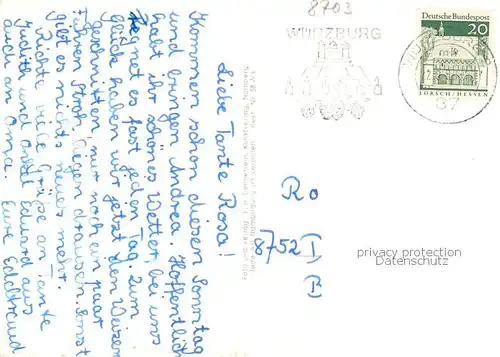 Liebe Tante Rosa!
Kommen schon diesen Sonntag
und bringen Andrea. Hoffentlich
habt ihr schönes Wetter, bei uns
regnet es fast jeden Tag. Zum
Glück haben wir jetzt den Weizen
geschnitten, nur noch ein paar
Fuhren Stroh liegen draußen. Sonst
gibt es nichts neues mehr.
Richte viele Grüße an Tante
Judith und Onkel Eduard aus
auch an Oma. Eure Edeltraud
8703
WÜRZBURG
Deutsche Bundespost
20
LORSCH/HESSEN
87
Ro
8752 I
B
privacy protection
Datenschutz